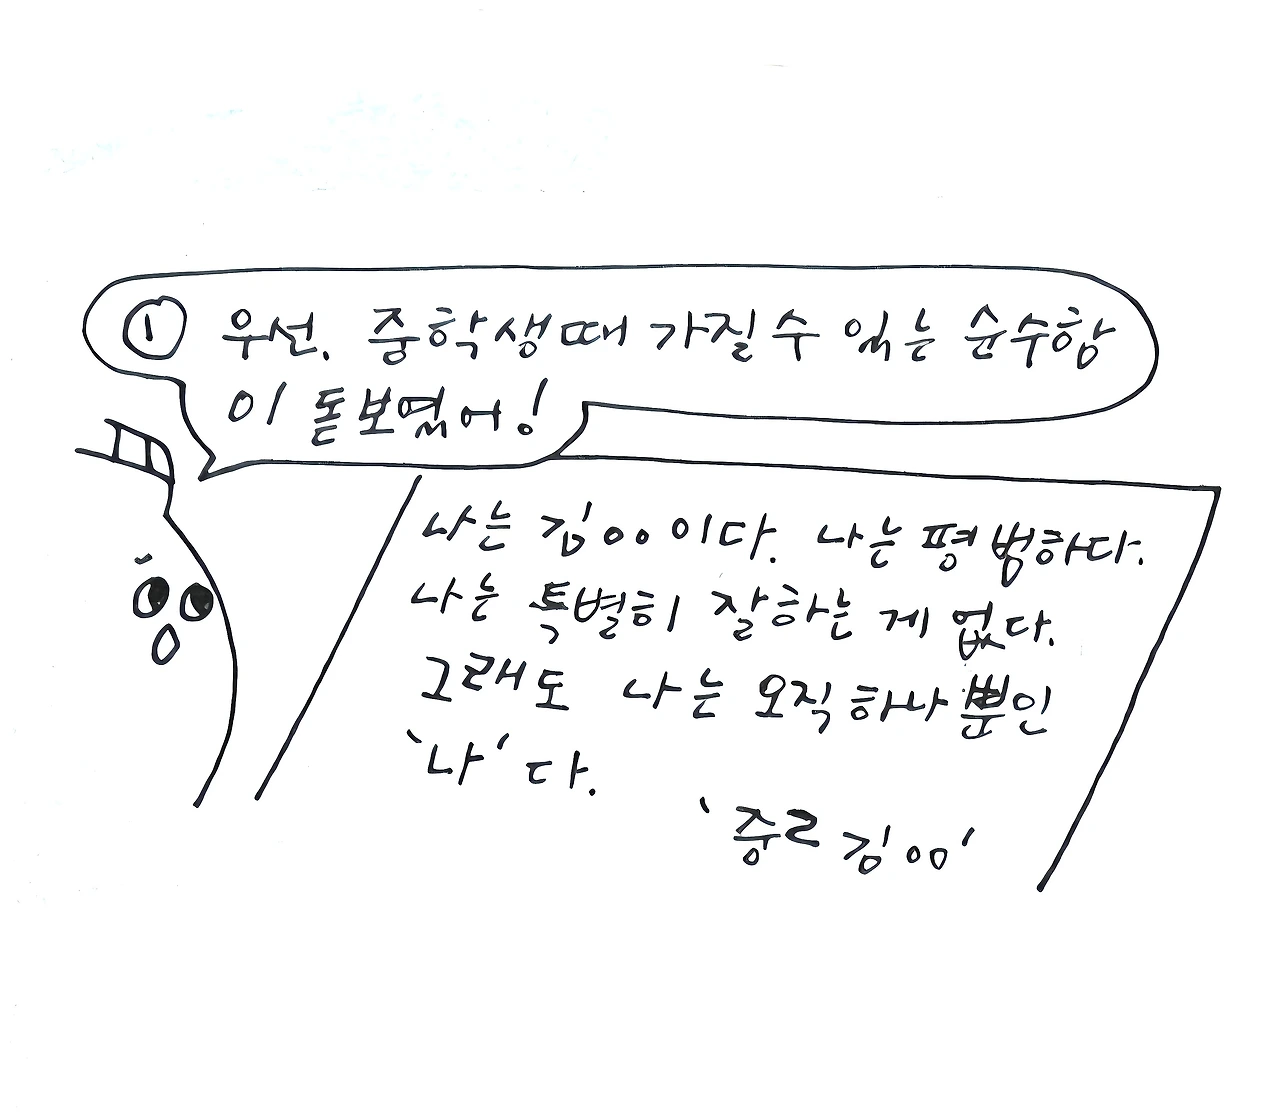 ① 우선, 중학생때 가질 수 있는 순수함
이 돋보였어!
나는 김ㅇㅇ이다. 나는 평범하다.
나는 특별히 잘하는 게 없다.
그래도 나는 오직 하나뿐인
'나'다.
'중2 김ㅇㅇ'